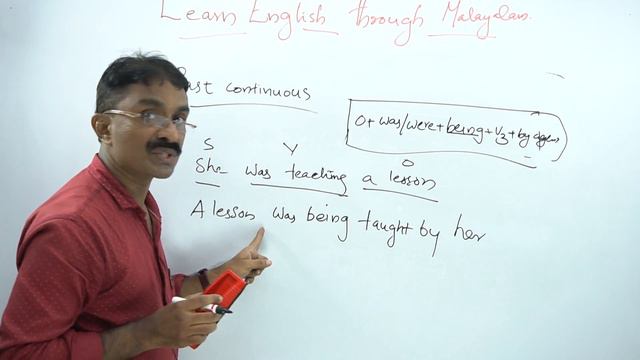 Learn English through Malayalam.
Past continuous
O+ was/were + being + V3 + by agent
S V O
She was teaching a lesson
A lesson was being taught by her